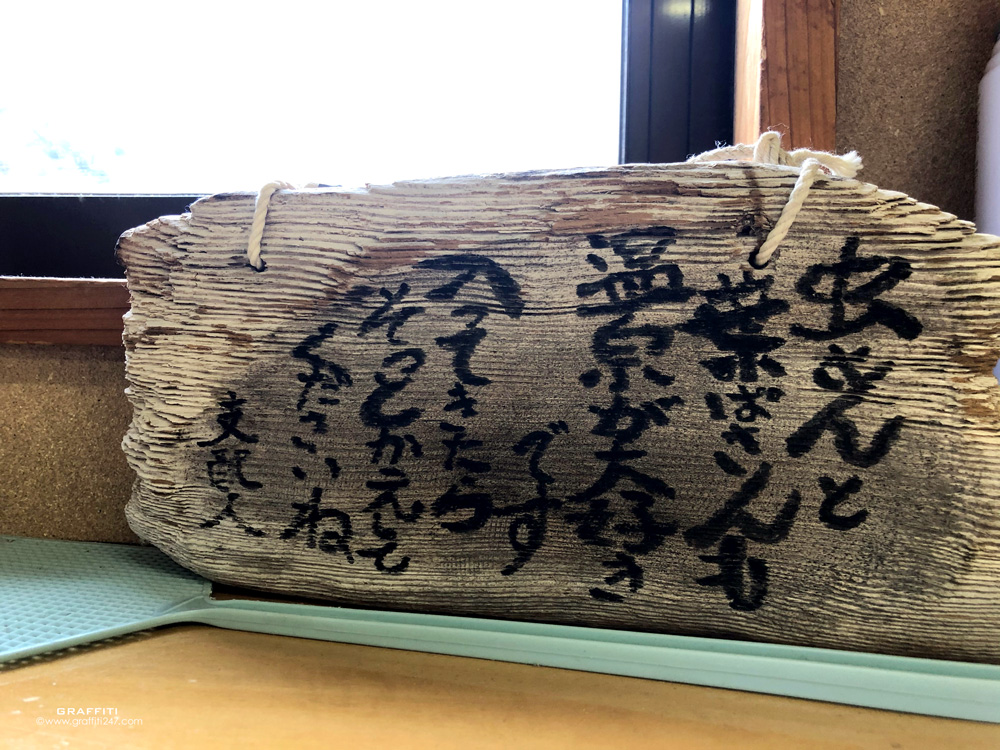 虫さんと
葉っぱさんも
温泉が大好き
です
入ってきたら
そっとかえして
くださいね
支配人
GRAFFITI
©www.graffiti247.com